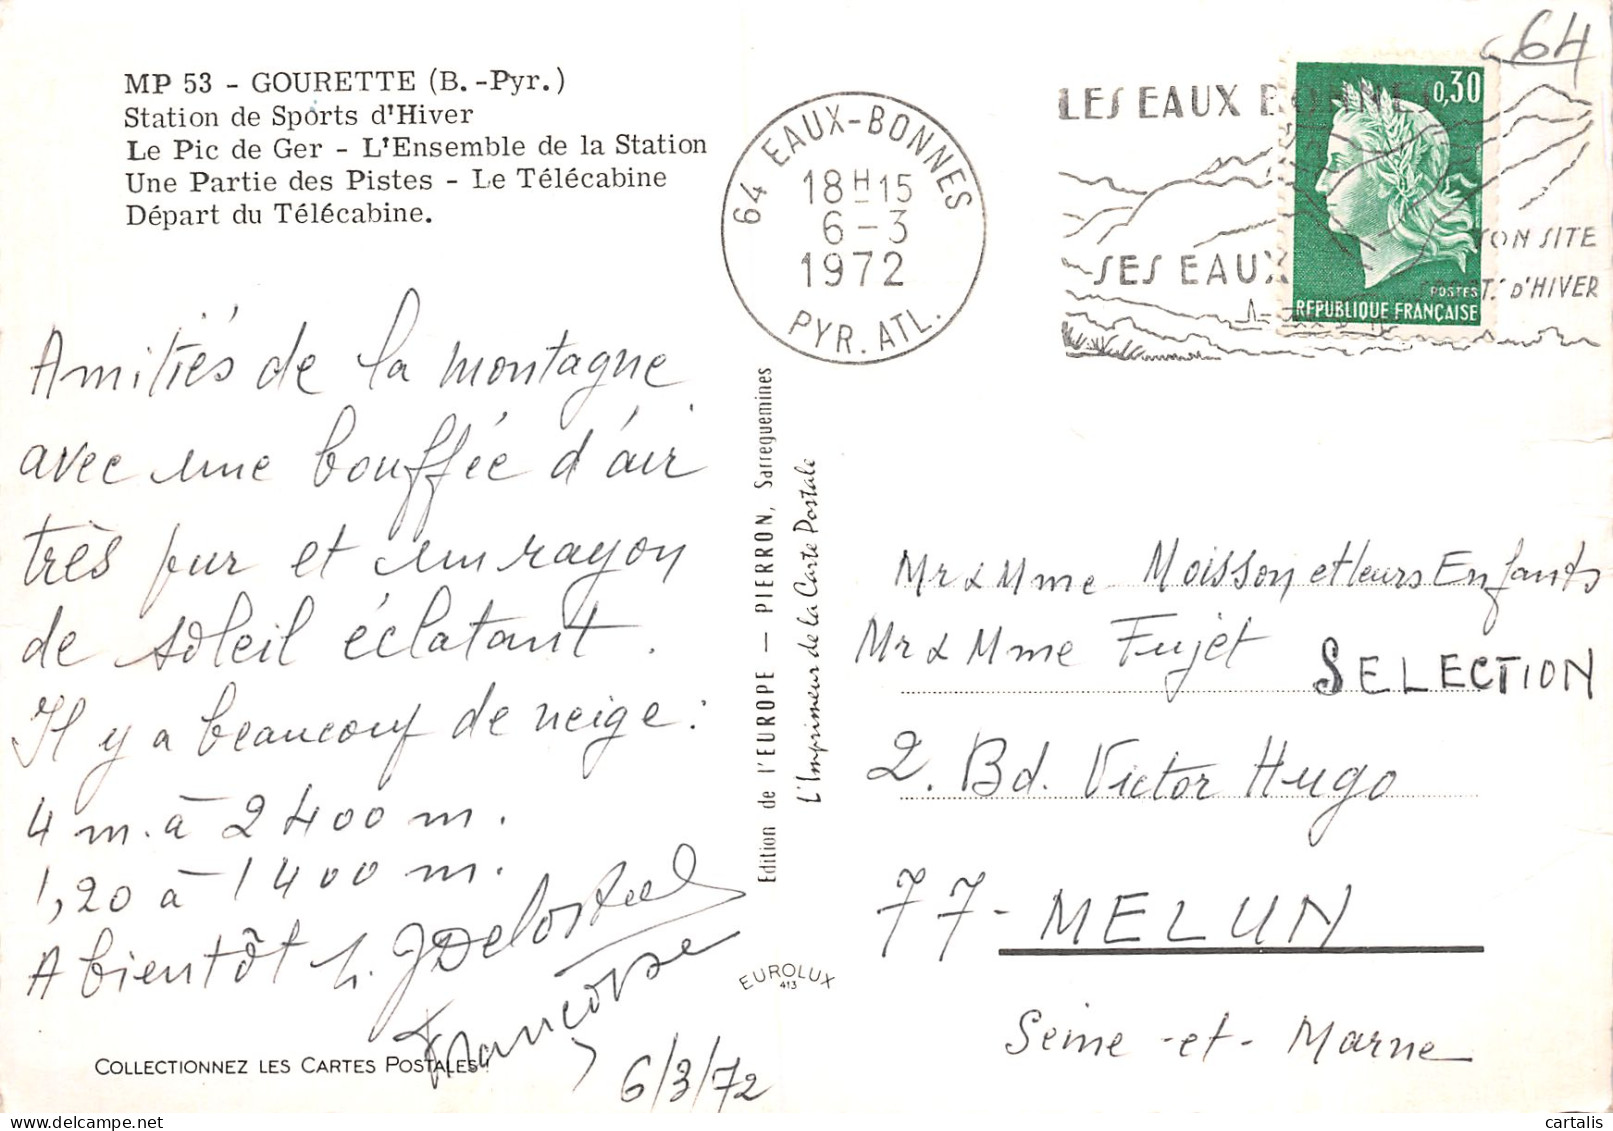 MP 53 - GOURETTE (B.-Pyr.)
Station de Sports d'Hiver
Le Pic de Ger - L'Ensemble de la Station
Une Partie des Pistes - Le Télécabine
Départ du Télécabine.
Amitiés de la montagne
avec une bouffée d'air
très pur et un rayon
de soleil éclatant.
Il y a beaucoup de neige :
4 m. à 2400 m.
1,20 à 1400 m.
A bientôt
Françoise
6/3/72
COLLECTIONNEZ LES CARTES POSTALES
Edition de l'EUROPE — PIERRON, Sarreguemines
L'Imprimeur de la Carte Postale
EUROLUX
413
64 EAUX-BONNES
18H15
6-3
1972
PYR. ATL.
LES EAUX BONNES
SES EAUX
SON SITE
SPORTS D'HIVER
0,30
POSTES
REPUBLIQUE FRANÇAISE
64
Mr & Mme Moisson et leurs Enfants
Mr & Mme Fujet
SELECTION
2. Bd. Victor Hugo
77 - MELUN
Seine-et-Marne
cartalis